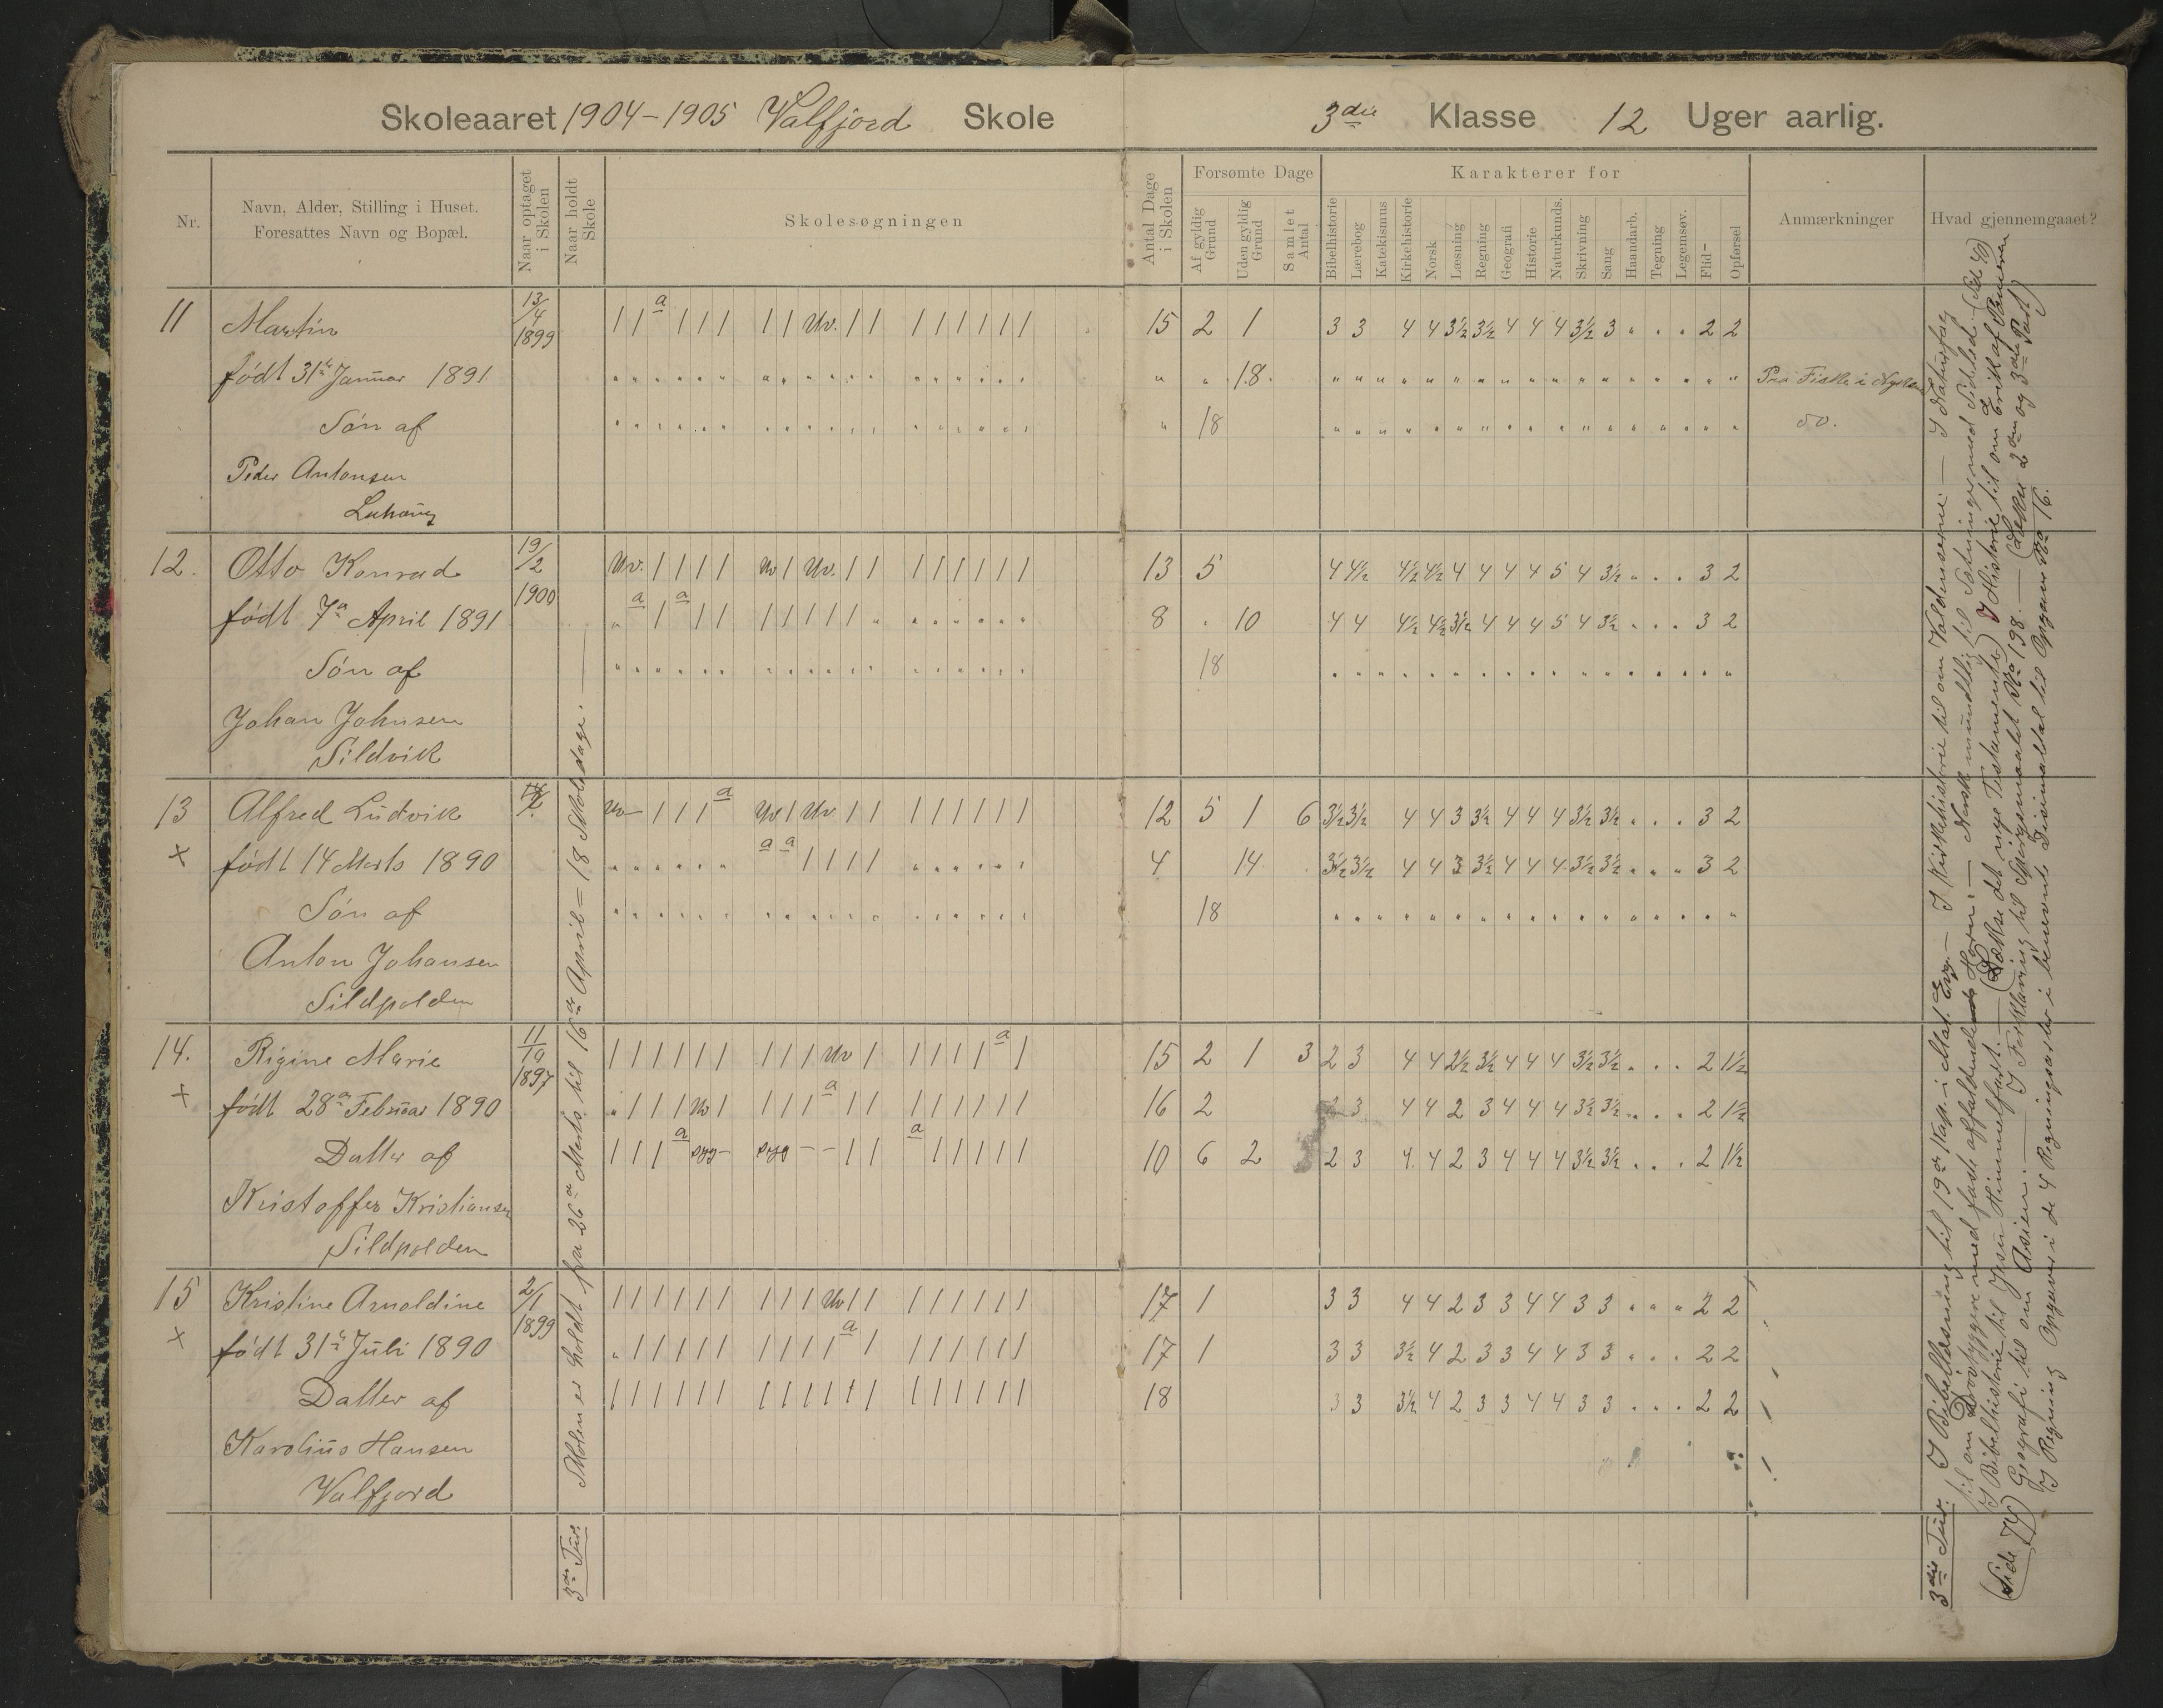 Skoleaaret 1904-1905 Valfjord Skole
3die Klasse 12 Uger aarlig.
Nr.
Navn, Alder, Stilling i Huset.
Foresattes Navn og Bopæl.
Naar optaget
i Skolen
Naar holdt
Skole
Skolesøgningen
Antal Dage
i Skolen
Forsømte Dage
Af gyldig
Grund
Uden gyldig
Grund
Samlet
Antal
Karakterer for
Bibelhistorie
Lærebog
Katekismus
Kirkehistorie
Norsk
Læsning
Regning
Geografi
Historie
Naturkunds.
Skrivning
Sang
Haandarb.
Tegning
Legemsøv.
Flid-
Opførsel
Anmærkninger
Hvad gjennemgaaet?
11 Martin 13/4 1899 / / a / / / / / Uv. / / / / / / / / 15 2 1 3 3 4 4 3½ 3½ 4 4 4 3½ 3 " . . 2 2
født 31te Januar 1891 " " 18 Paa Fiske i
Søn af " 18 do.
Peder Antonsen
12. Otto Konrad 19/2 1900 Uv. / / / / Uv / Uv. / / / / / / / / 13 5 4 4½ 4½ 4½ 4 4 4 4 5 4 3½ " . . 3 2
født 7de April 1891 " a / a / / / / / / / " 8 " 10 4 4 4½ 4½ 3½ 4 4 4 5 4 3½ . . . 3 2
Søn af 18
Johan Johnsen
Sildvik
13 Alfred Ludvik Uv - / / / a Uv / Uv / / / / / / / / 12 5 1 6 3½ 3½ 4 4 3 3½ 4 4 4 3½ 3½ . . . 3 2
x født 14 Marts 1890 a a / / / / 4 14 3½ 3½ 4 4 3 3½ 4 4 4 3½ 3½ . . . 3 2
Søn af 18
Anton Johansen
Sildpolden
14. Rigine Marie 11/10 1897 / / / / / / / / / Uv / / / / / a / 15 2 1 3 2 3 4 4 2½ 3½ 4 4 4 3½ 3½ . . . 2 1½
x født 28de Februar 1890 " / / / Uv / / / / a / / / / / / / / 16 2 2 3 4 4 2 3 4 4 4 3½ 3½ . . . 2 1½
Datter af / / / a syg - syg - - / / a / / / / / 10 6 2 2 3 4 4 2 3 4 4 4 3½ 3½ . . . 2 1½
Kristoffer Kristiansen
Sildpolden
15 Kristine Arnoldine 2/1 1899 / / / / / / / / / Uv / / / / / / / / 17 1 3 3 4 4 2 3 3 4 4 3 3 " " " 2 2
x født 31te Juli 1890 " / / / / / / / / / a / / / / / / / 17 1 3 3 3½ 4 2 3 3 4 4 3 3 " . . 2 2
Datter af / / / / / / / / / / / / / / / / / / 18 3 3 3½ 4 2 3 3 4 4 3 3 . . . 2 2
Karolius Hansen
Valfjord
3die Tur. Skolen er holdt fra 26de Marts til 16de April = 18 Skoledage.
3die Tur. I Bibellæsning til 19de Kap. i Mat. Evg. - I Kirkehistorie til om Valdenserne - I Naturfag
til om Drøvtyggere med faste affaldende Horn. - Norsk mundtlig til Sætninger med Sideled. (Side 40)
I Bibelhistorie til Jesu Himmelfart. - (Læse det nye Testamente) I Historie til om Erik af Pomeren
(Side 74) Geografi til om Asien. - I Forklaring til Spørgsmaalet No 198. - (Læse 2den og 3die Part)
I Regning Opgaver i de 4 Regningsarter i benevnte Desimaltal til Opgave No 16.